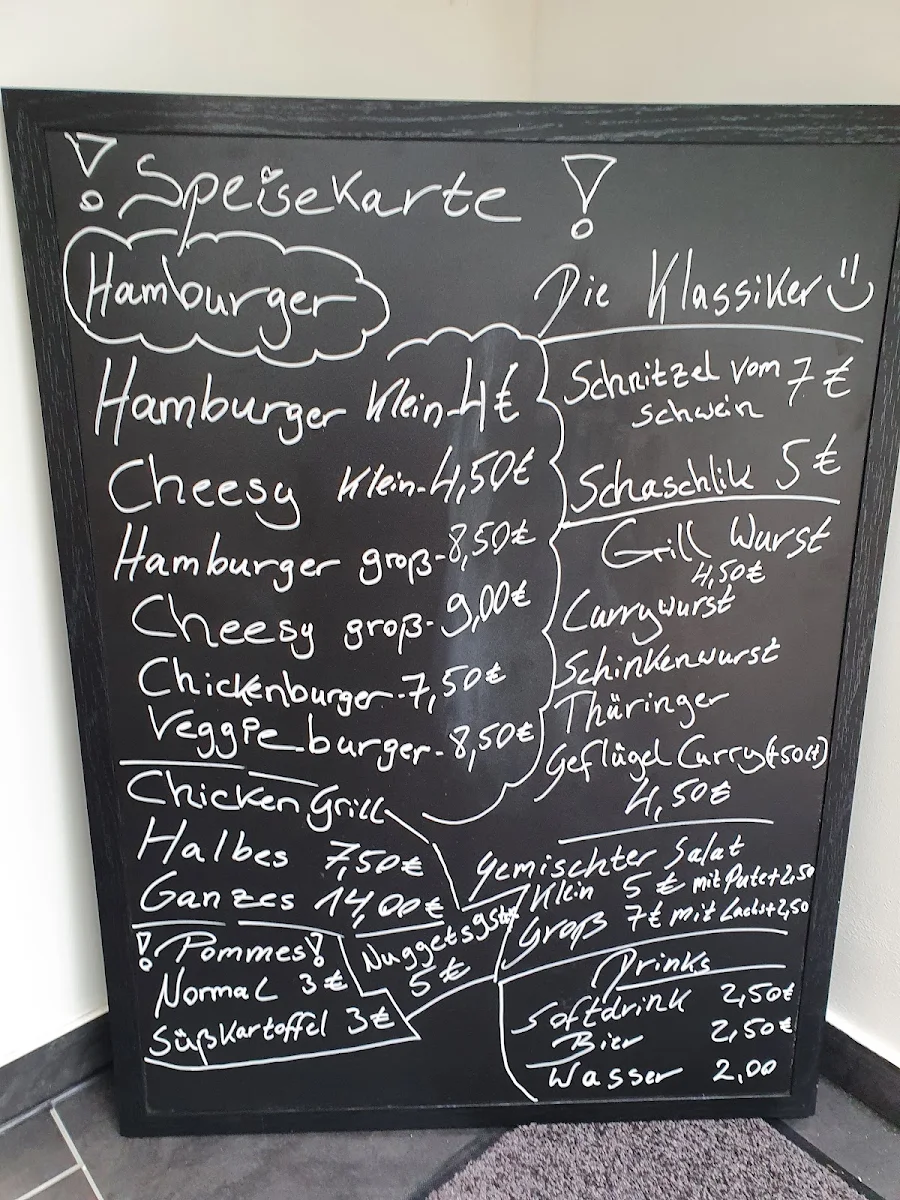 ! Speisekarte !
Hamburger
Hamburger Klein-4€
Cheesy Klein-4,50€
Hamburger groß-8,50€
Cheesy groß-9,00€
Chickenburger-7,50€
Veggie burger-8,50€
Chicken Grill
Halbes 7,50€
Ganzes 14,00€
! Pommes!
Normal 3€
Süßkartoffel 3€
Nuggets 9st
5€
Die Klassiker
Schnitzel vom 7€
Schwein
Schaschlik 5€
Grill Wurst
4,50€
Currywurst
Schinkenwurst
Thüringer
Geflügel Curry(+50ct)
4,50€
gemischter Salat
Klein 5€ mit Pute+2,50
Groß 7€ mit Lachs+2,50
Drinks
Softdrink 2,50€
Bier 2,50€
Wasser 2,00